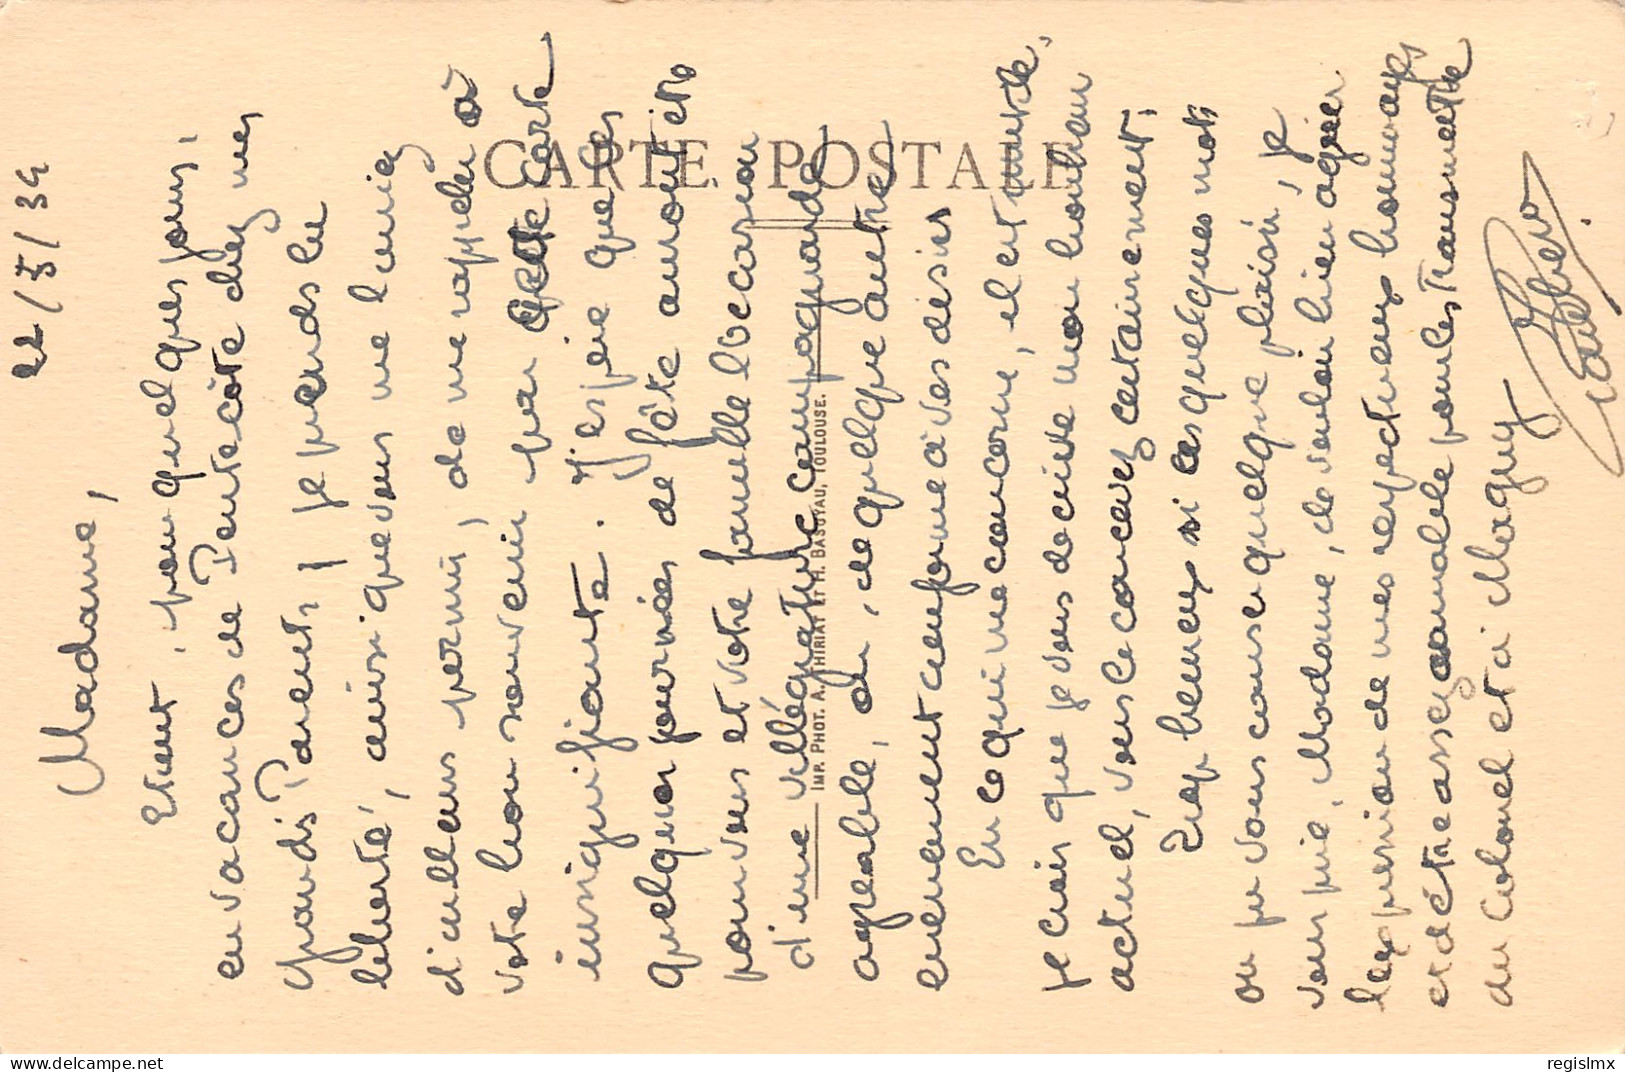 22/5/34
Madame,
Etant, pour quelques jours,
en vacances de Pentecôte chez mes
grands Parents, je prends la
liberté, ainsi que vous me l'aviez
d'ailleurs permis, de me rappeler à
votre bon souvenir par cette carte
insignifiante. J'espère que ces
quelques journées de fête auront été
pour vous et votre famille l'occasion
d'une villégiature campagnarde
agréable, ou, de quelque autre
événement conforme à vos désirs
En ce qui me concerne, il est inutile
je crois que je vous décrive mon bonheur
actuel, vous le concevez certainement.
Trop heureux si ces quelques mots
ont pu vous causer quelque plaisir, je
vous prie, Madame, de vouloir bien agréer
l'expression de mes respectueux hommages
et d'être assez aimable pour les transmettre
au Colonel et à Maguy
CARTE POSTALE
IMP. PHOT. A. THIRIAT ET H. BASUYAU, TOULOUSE.
regislmx